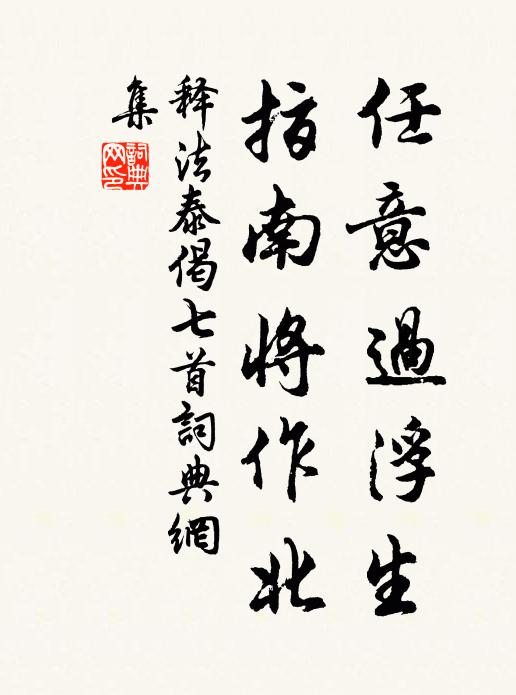 任意過浮生
指南將作北
释法泰偈七首詞典網
集
詞典
网印